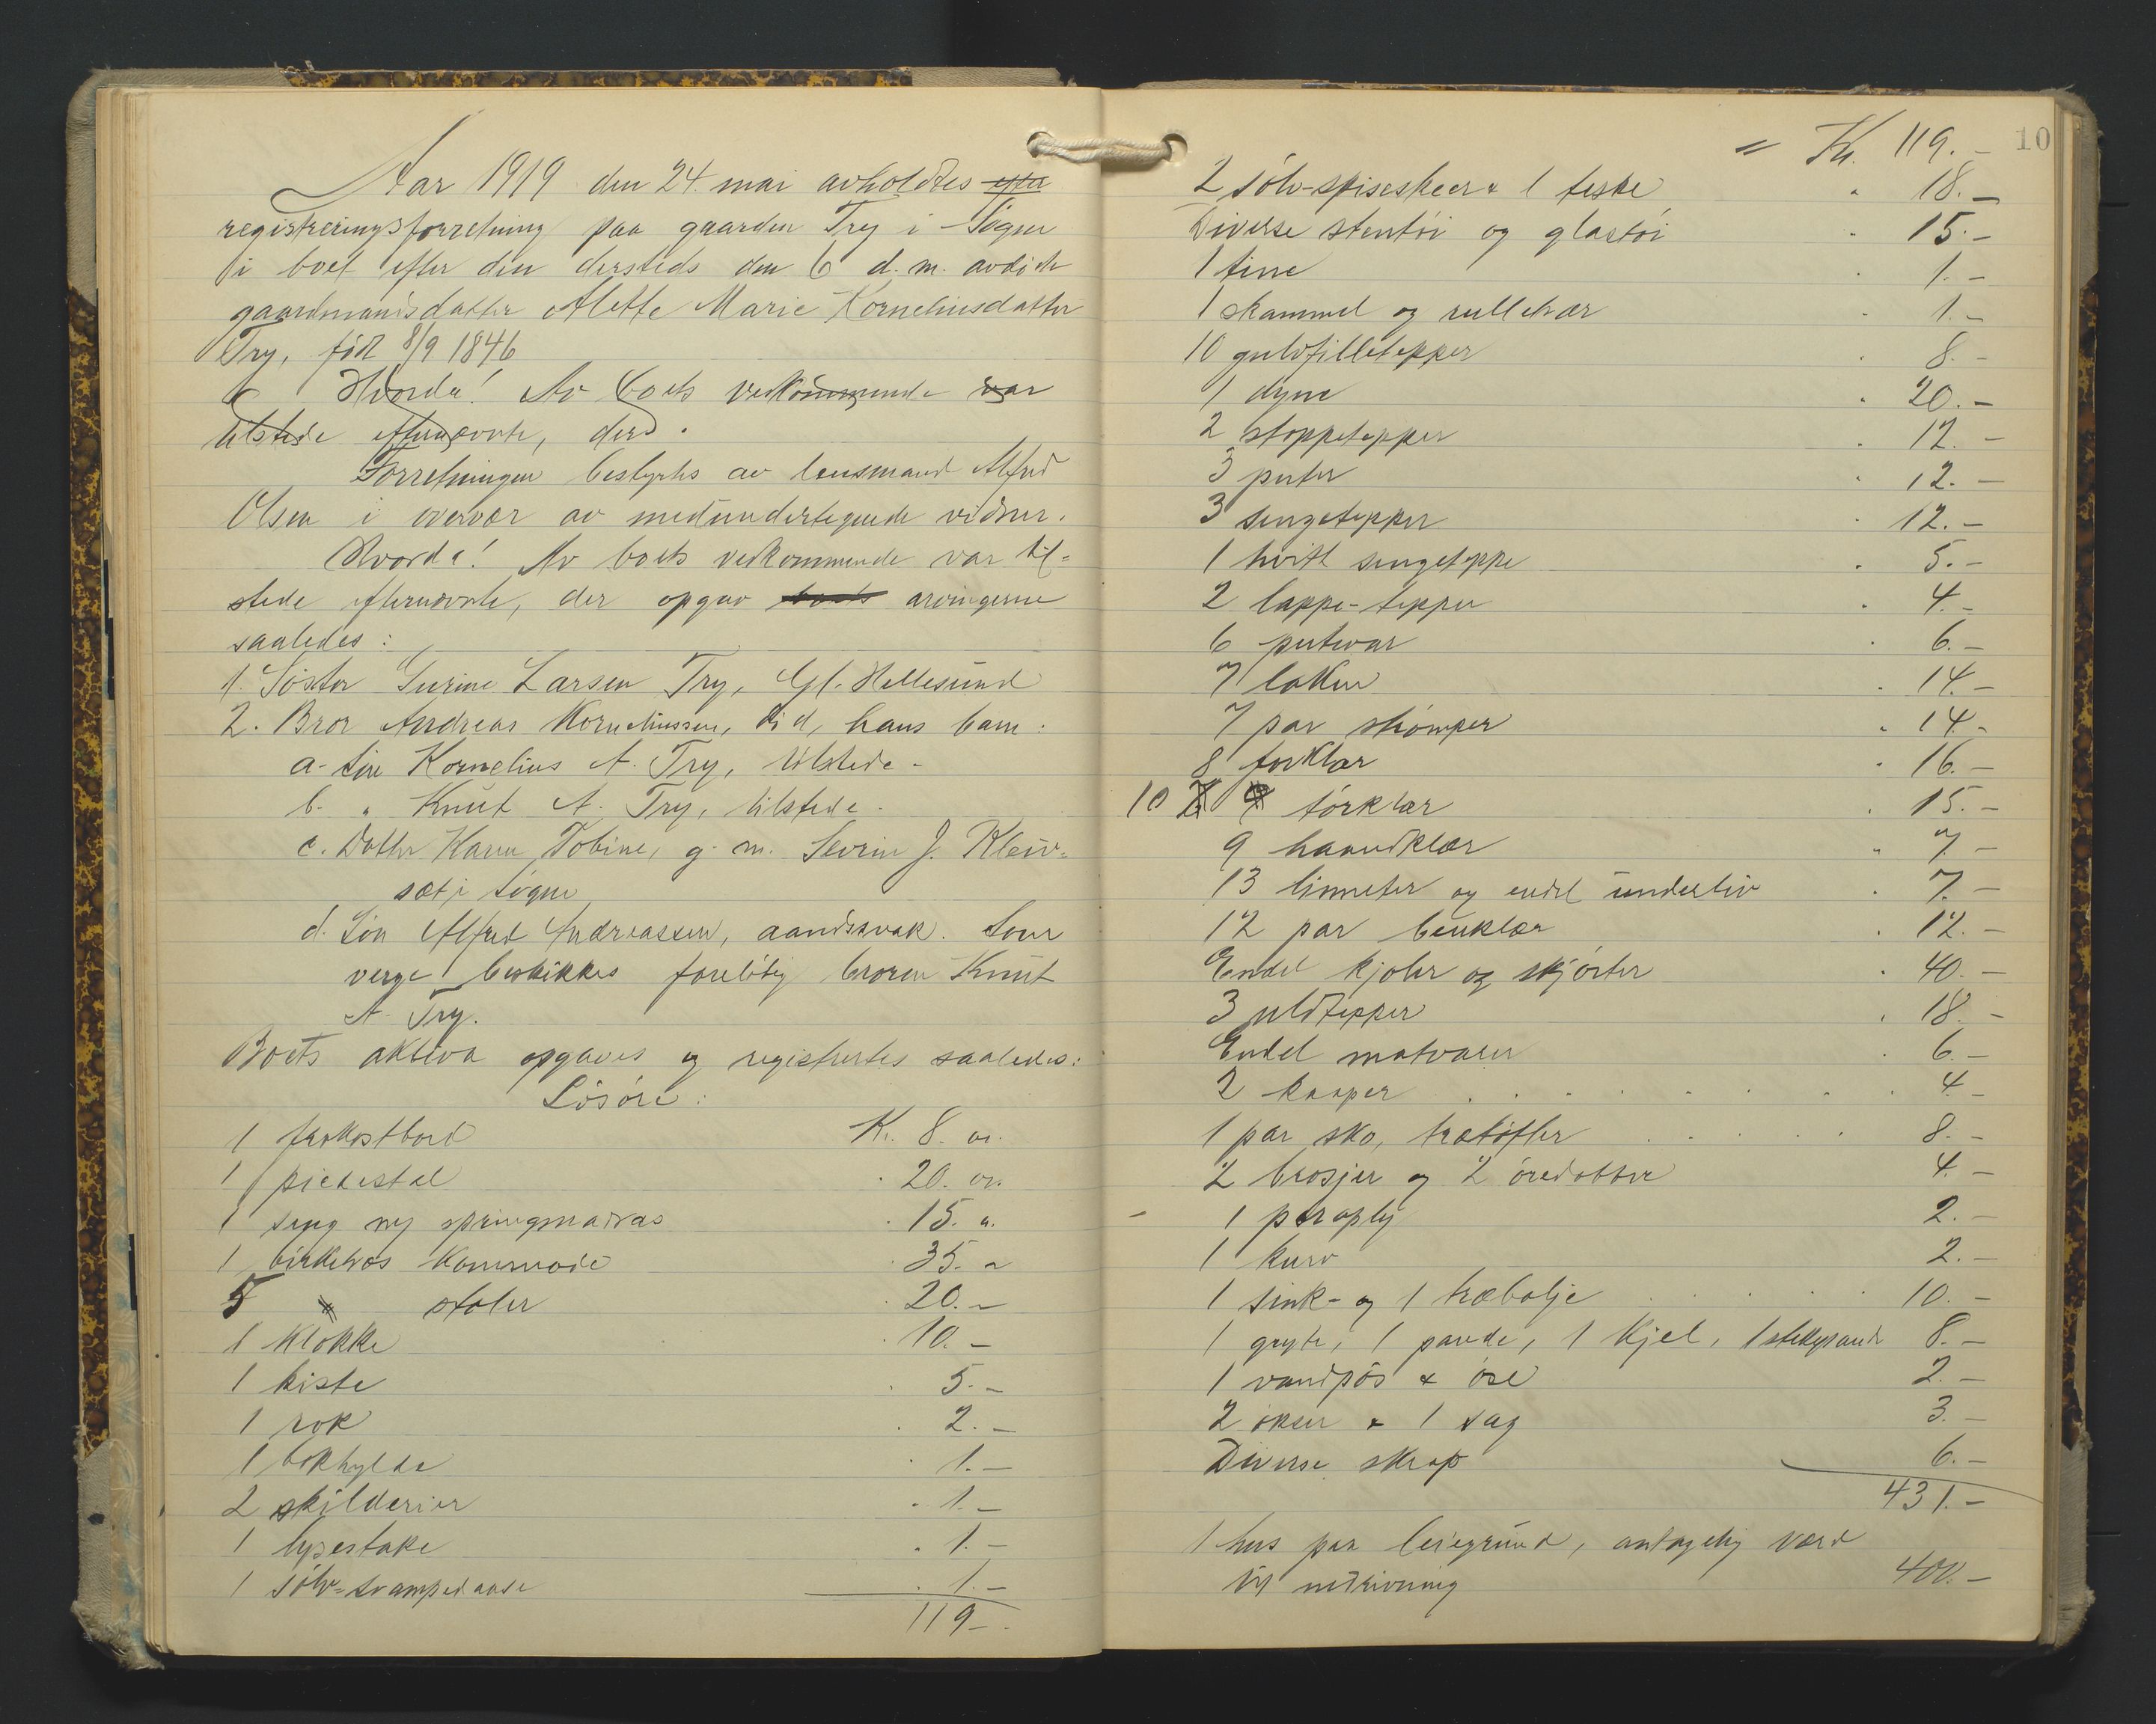 Aar 1919 den 24. mai avholdtes efter
registreringsforretning paa gaarden Try i Søgne
i boet efter den dersteds den 6 d.m. avdøde
gaardmansdatter Alette Marie Korneliusdatter
Try, født 8/9 1846
Hvorda! Av boets vedkommende var
tilstede efternævnte, ders.
Forretningen bestyrtes av lensmand Alfred
Olsen i overvær av medundertegnede vidner.
Hvorda! Av boets vedkommende var til=
stede efternævnte, der opgav boets arvingerne
saaledes:
1. Søster Gurine Larsen Try, Gl. Hellesund
2. Bror Andreas Korneliussen, død, hans barn:
a. Søn Kornelius A. Try, tilstede.
b. " Knut A. Try, tilstede.
c. Datter Karen Tobine, g. m. Severin J. Kleiv=
sæt i Søgne
d. Søn Alfred Andreassen, aandssvak. Som
verge beskikkes foreløbig broren Knut
A. Try.
Boets aktiva opgaves og registrertes saaledes:
Løsøre:
1 frokostbord Kr. 8. ør.
1 piedestal " 20. ør.
1 seng m/ springmadras " 15. "
1 birketræs kommode " 35. "
5 stoler " 20. -
1 klokke " 10. -
1 kiste " 5. -
1 rok " 2. -
1 bokhylde " 1. -
2 skilderier " 1. -
1 lysestake " 1. -
1 sølv=svampedaase " 1. -
119 -
10
= Kr. 119. -
2 sølv-spiseskeer & 1 teske " 18. -
Diverse stentøi og glastøi " 15. -
1 tine " 1. -
1 skammel og rulletræ " 1. -
10 gulvfilletepper " 8. -
1 dyne " 20. -
2 stoppetepper " 12. -
3 puter " 12. -
3 sengetepper " 12. -
1 hvitt sengeteppe " 5. -
2 lappe-tepper " 4. -
6 putevar " 6. -
7 laken " 14. -
7 par strømper " 14. -
8 forklær " 16. -
10 tørklær " 15. -
9 haandklær " 7. -
13 linneter og endel underliv " 7. -
12 par benklær " 12. -
Endel kjoler og skjørter " 40. -
3 uldtepper " 18. -
Endel matvarer " 6. -
2 kaaper " 4 -
1 par sko, trætøfler 8. -
2 brosjer og 2 øredobber 4. -
1 paraply 2. -
1 kurv 2. -
1 sink- og 1 træbalje 10. -
1 gryte, 1 pande, 1 kjel, 1 stekepande 8. -
1 vandpøs & øse 2. -
2 økser & 1 sag 3. -
Diverse skrap 6. -
431. -
1 hus paa leiegrund, antagelig værd
til nedrivning 400. -